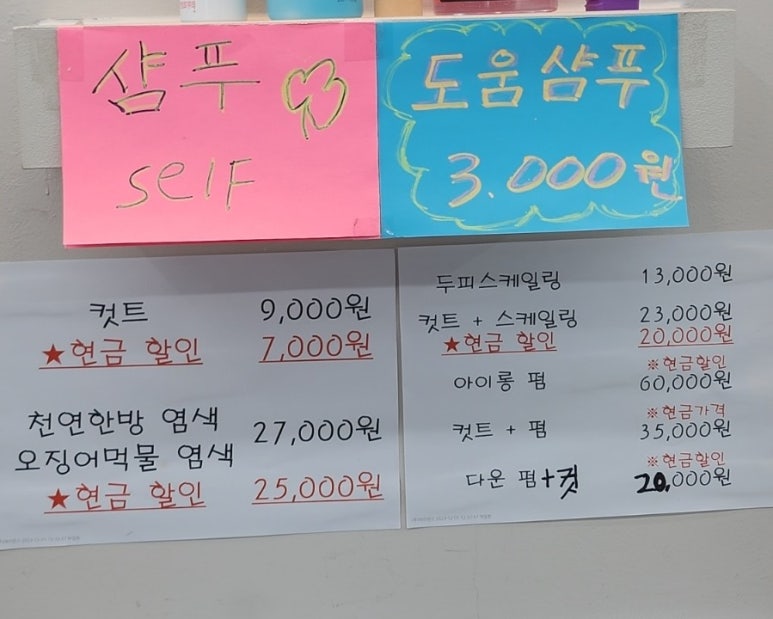 샴푸
self
도움샴푸
3.000원
컷트 9,000원
★현금 할인 7,000원
천연한방 염색
오징어먹물 염색 27,000원
★현금 할인 25,000원
두피스케일링 13,000원
컷트 + 스케일링 23,000원
★현금 할인 20,000원
※현금할인
아이롱 펌 60,000원
※현금가격
컷트 + 펌 35,000원
※현금할인
다운 펌+컷 20,000원